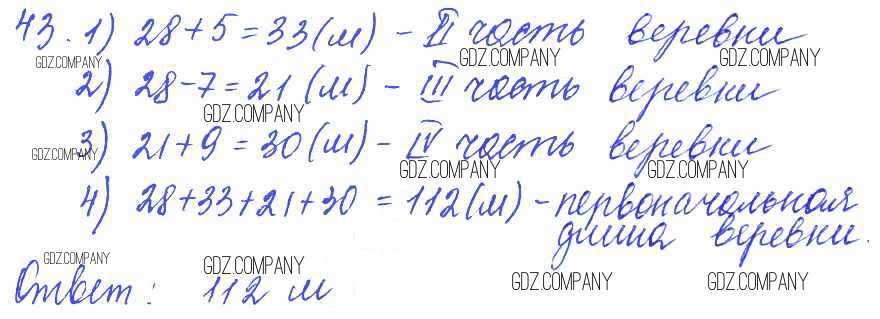 43. 1) 28+5=33(м) – II часть веревки
GDZ.COMPANY GDZ.COMPANY GDZ.COMPANY
2) 28-7=21 (м) – III часть веревки
GDZ.COMPANY
3) 21+9=30(м) – IV часть веревки
GDZ.COMPANY GDZ.COMPANY GDZ.COMPANY
4) 28+33+21+30 = 112(м) – первоначальная
длина веревки.
GDZ.COMPANY GDZ.COMPANY
Ответ: 112 м
GDZ.COMPANY GDZ.COMPANY